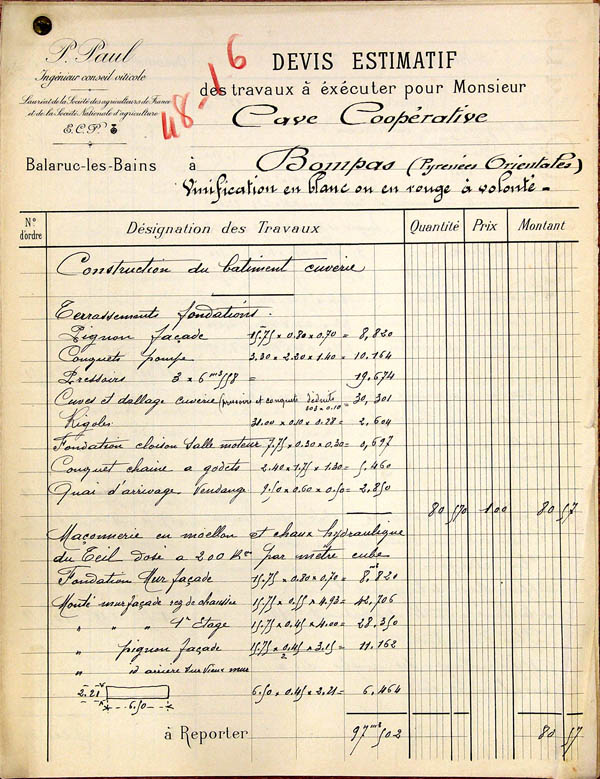 P. Paul
Ingénieur conseil viticole
Lauréat de la Société des agriculteurs de France
et de la Société Nationale d'agriculture
E.C.P.
Balaruc-les-Bains
48-16
DEVIS ESTIMATIF
des travaux à éxécuter pour Monsieur
Cave Coopérative
à Bompas (Pyrenées Orientales)
Vinification en blanc ou en rouge à volonté -
N° d'ordre Désignation des Travaux Quantité Prix Montant
Construction du batiment cuverie
Terrassements fondations.
Pignon façade 15.75 x 0.80 x 0.70 = 8,820
Conquets pompe 3.30 x 2.20 x 1.40 = 10.164
Pressoirs 3 x 6 m3 558 = 19.674
Cuves et dallage cuverie (pressoirs et conquets déduits 303 x 0.10 = 30,301
Rigoles 31.00 x 0.10 x 0.28 = 2,604
Fondation cloison salle moteur 7.75 x 0.30 x 0.30 = 0,697
Conquet chaine a godets 2.40 x 1.75 x 1.30 = 5.460
Quai d'arrivage Vendange 9.50 x 0.60 x 0.50 = 2.850
80 570 1.00 80 57
Maçonnerie en moellon et chaux hydraulique
du Teil dosé a 200 Kgs par mètre cube
Fondation Mur façade 15.75 x 0.80 x 0.70 = 8,m3820
Monté mur façade rez de chaussée 15.75 x 0.55 x 4.93 = 42,706
" " " 1er Etage 15.75 x 0.45 x 4.00 = 28.350
" pignon façade 15.75 x 0.45 x 3.15 = 11.162
2
" d'arrière sur vieux mur
2.21 6.50 6.50 x 0.45 x 2.21 = 6,464
à Reporter 97 m3 502 80 57